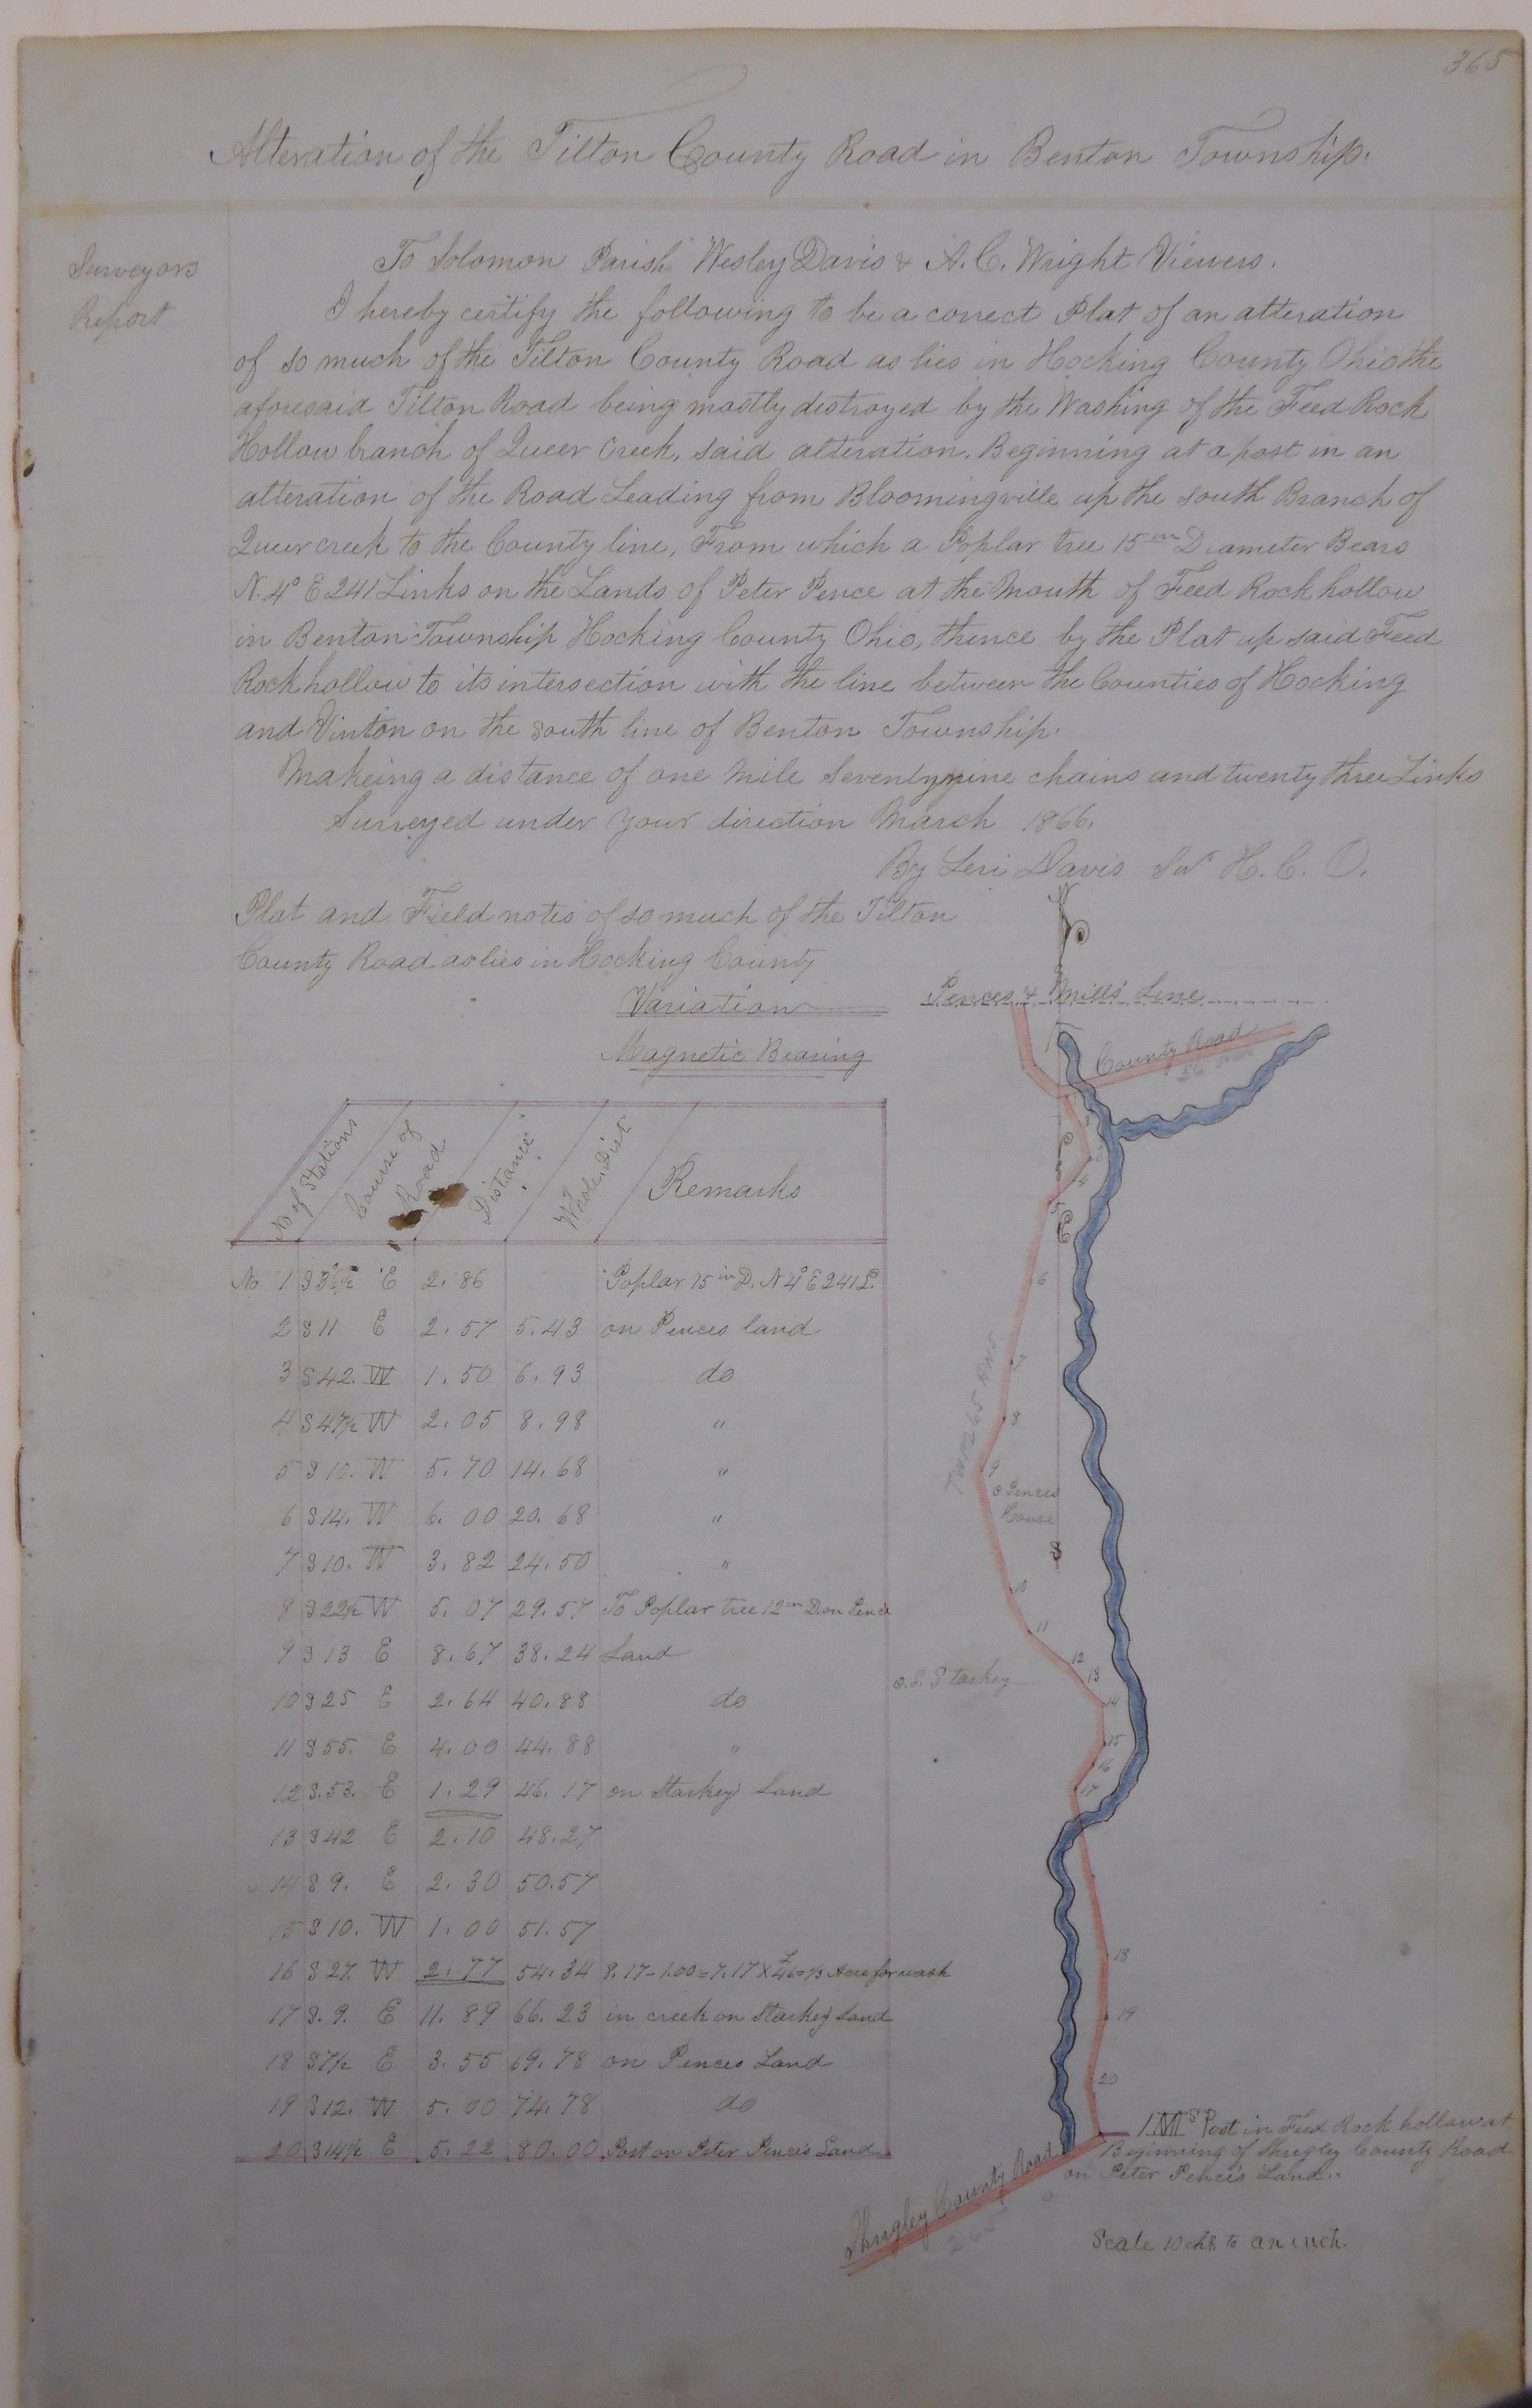 365
Alteration of the Tilton County Road in Benton Township.
Surveyors
Report
To Solomon Parish Wesley Davis & A. C. Wright Viewers.
I hereby certify the following to be a correct Plat of an alteration
of so much of the Tilton County Road as lies in Hocking County Ohio the
aforesaid Tilton Road being mostly destroyed by the Washing of the Feed Rock
Hollow branch of Queer Creek, said alteration. Beginning at a post in an
alteration of the Road Leading from Bloomingville up the south Branch of
Queer creek to the County line, From which a Poplar tree 15in Diameter Bears
N. 4° E 241 Links on the Lands of Peter Pence at the Mouth of Feed Rock hollow
in Benton Township Hocking County Ohio, thence by the Plat up said Feed
Rock hollow to its intersection with the line between the Counties of Hocking
and Vinton on the south line of Benton Township.
Makeing a distance of one Mile Seventynine chains and twenty three Links
Surveyed under your direction March 1866.
By Levi Davis Sur H. C. O.
Plat and Field notes of so much of the Tilton
County Road as lies in Hocking County
Variation
Magnetic Bearing
N
Pences & Mills' Line
County Road
56
No of Stations
Course of Road
Distance
Whole Dist
Remarks
No 1 S 36½ E 2.86 Poplar 15in D. N 4° E 241 L.
2 S 11 E 2.57 5.43 on Pences land
3 S 42. W 1.50 6.93 do
4 S 47½ W 2.05 8.98 "
5 S 10. W 5.70 14.68 "
6 S 14. W 6.00 20.68 "
7 S 10. W 3.82 24.50 "
8 S 22½ W 5.07 29.57 To Poplar tree 12in D. on Pence
9 S 13 E 8.67 38.24 Land
10 S 25 E 2.64 40.88 do
11 S 55. E 4.00 44.88 "
12 S. 53. E 1.29 46.17 on Starkey Land
13 S 42 E 2.10 48.27
14 S 9. E 2.30 50.57
15 S 10. W 1.00 51.57
16 S 27. W 2.77 54.34 8.17-1.00=7.17 X 46=⅓ Acre for wash
17 S. 9. E 11.89 66.23 in creek on Starkey Land
18 S 7½ E 3.55 69.78 on Pences Land
19 S 12. W 5.00 74.78 do
20 S 14½ E 5.22 80.00 Post on Peter Pence's Land
4
5
6
7
8
9
Pences
House
S
10
11
12
13
14
15
16
17
18
19
20
TWP 265 RNS
S. Starkey
1 Ms Post in Feed Rock hollow at
Beginning of Shrigley County Road
on Peter Pence's Land.
Shrigley County Road
265
Scale 10 chs to an inch.